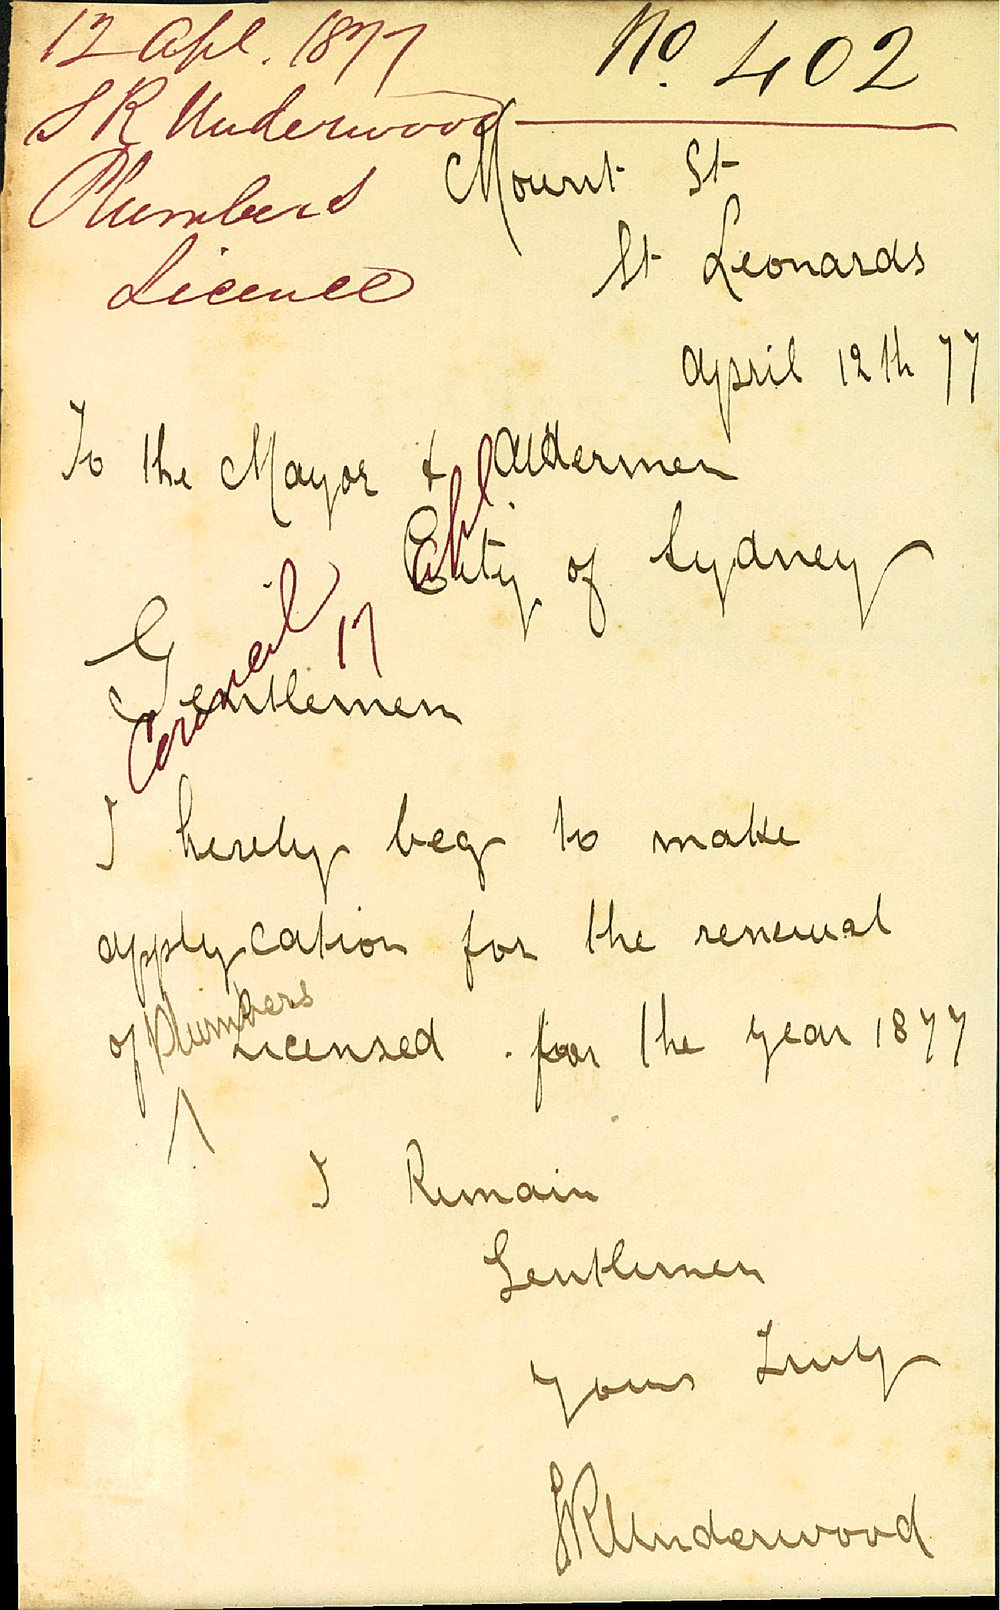 12 Apl. 1877
No. 402
S R Underwood
Plumbers
Licence
Mount St
St Leonards
April 12th 77
To the Mayor & Aldermen
City of Sydney
Council 17 Apl
Gentlemen
I hereby beg to make
applycation for the renewal
of Plumbers Licensed . for the year 1877
I Remain
Gentlemen
Yours Truly
S R Underwood